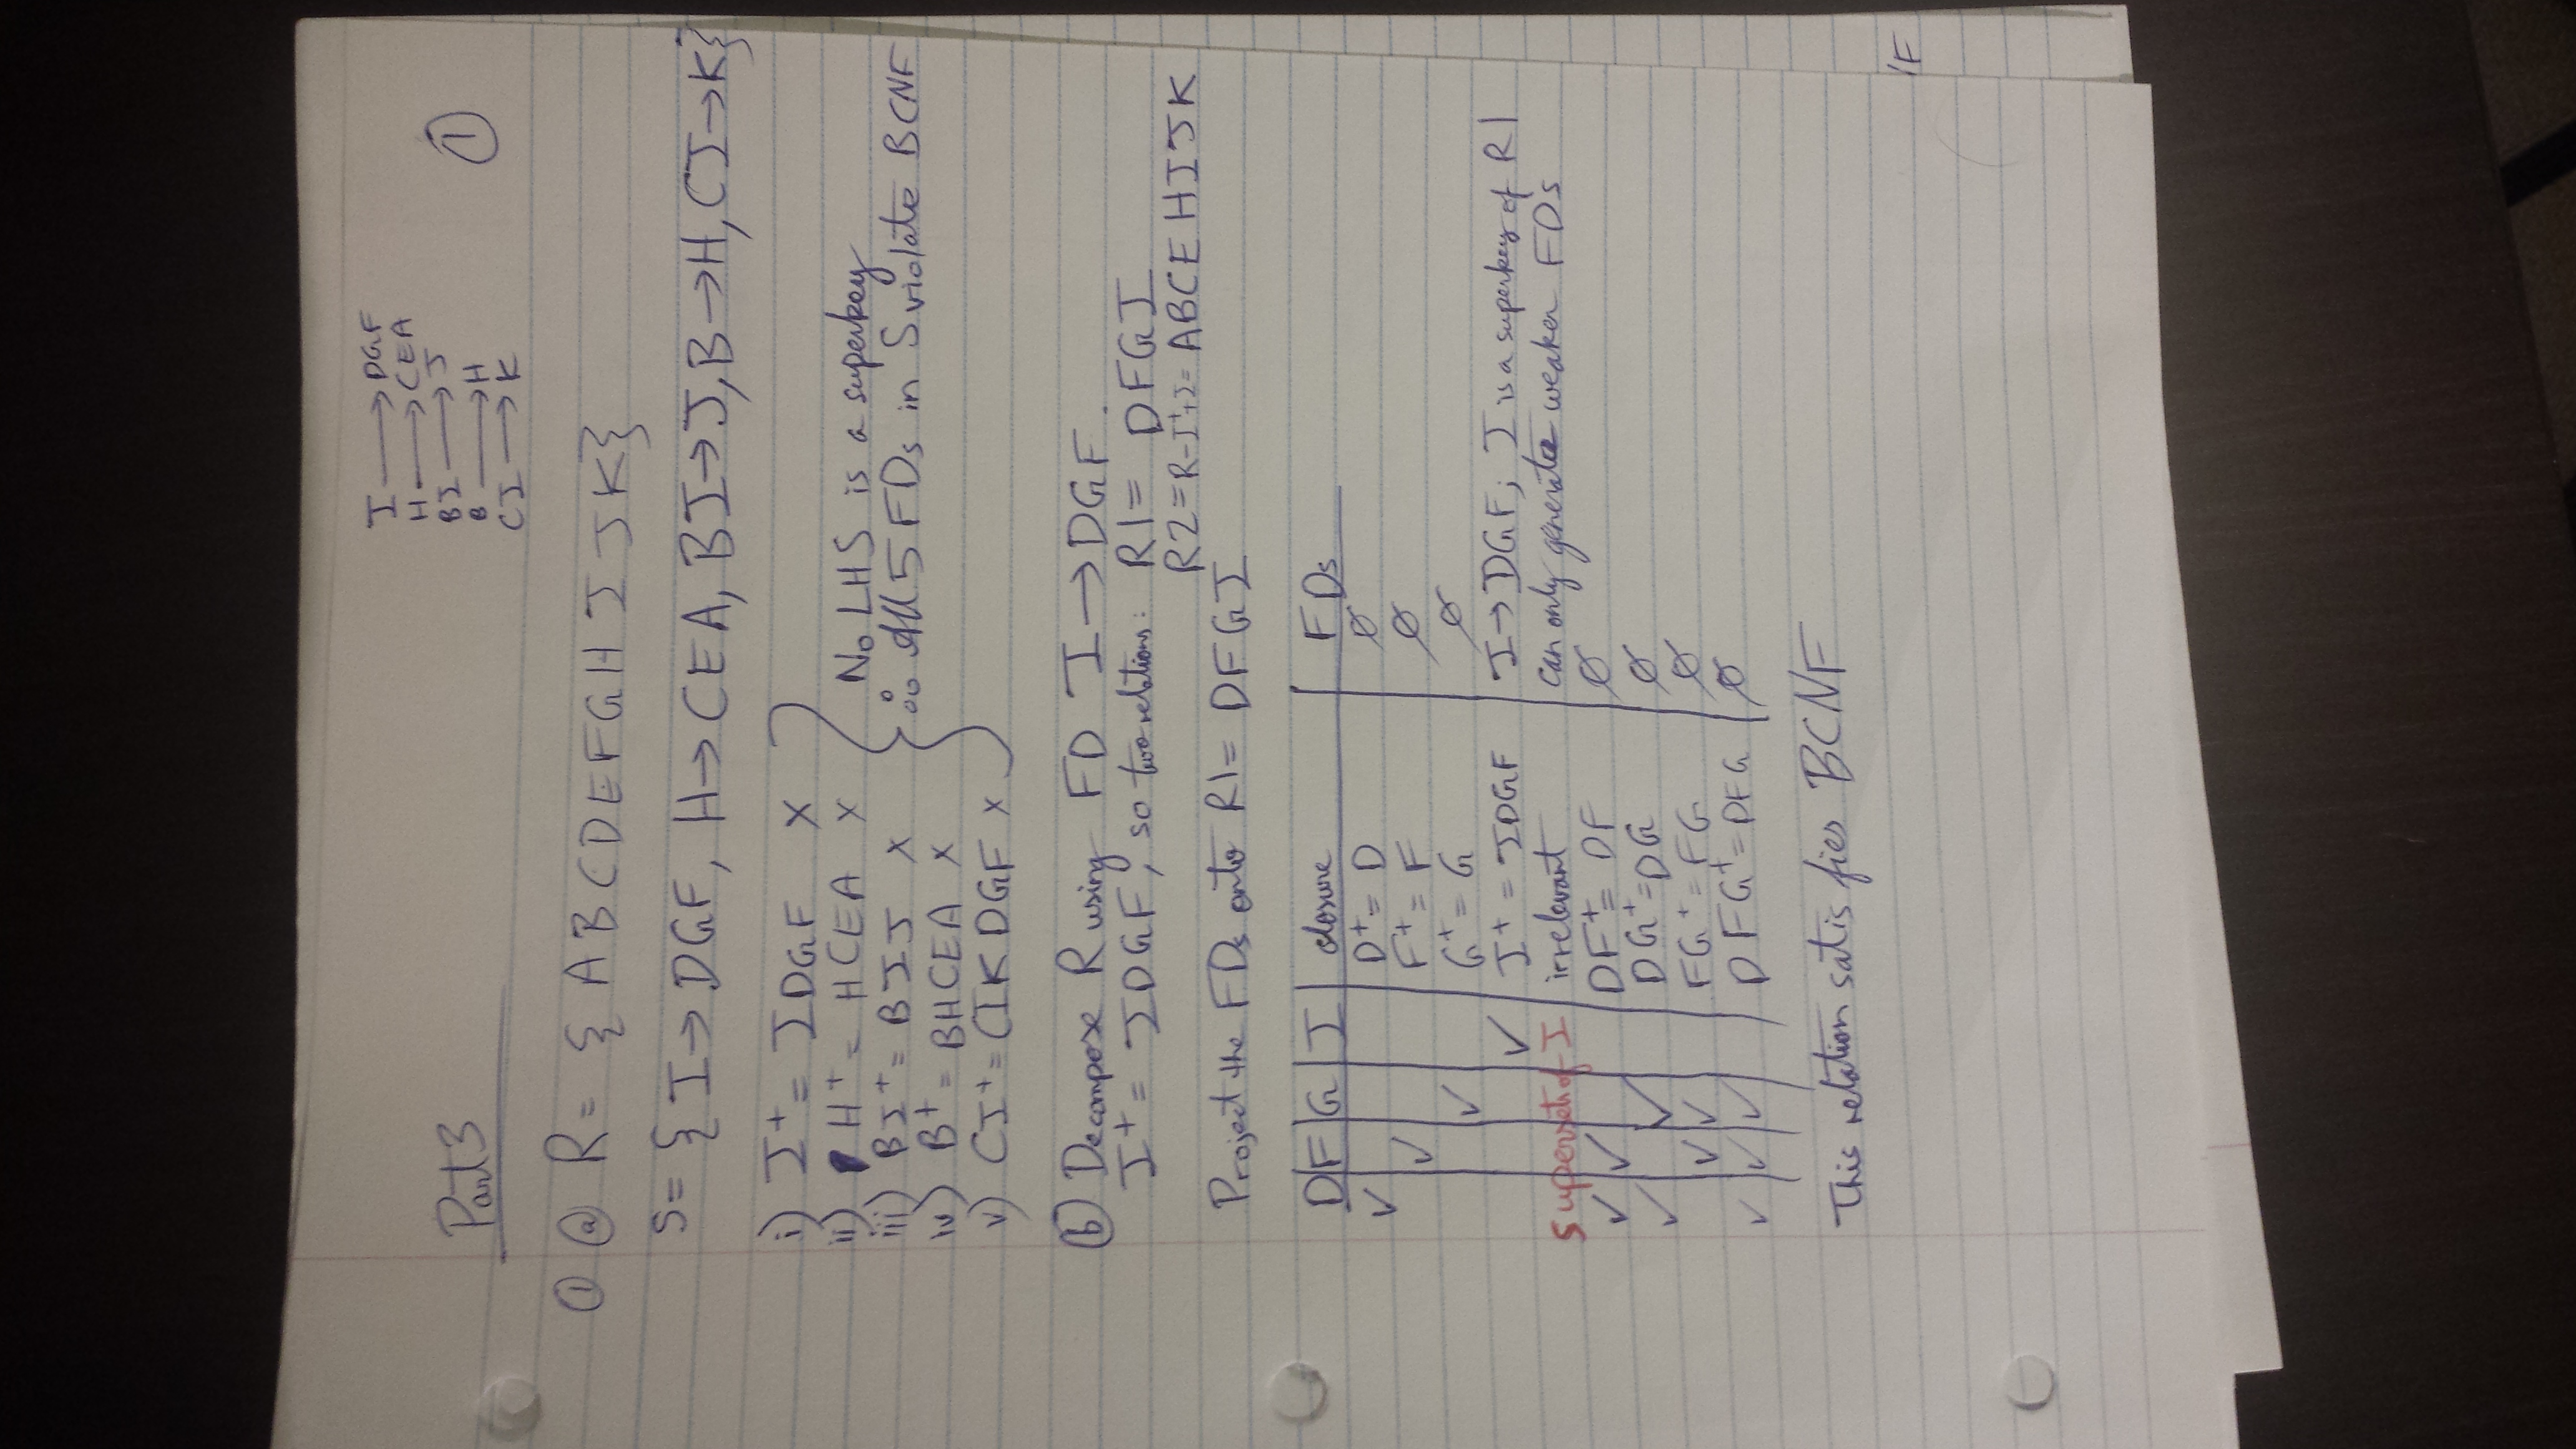 I → DGF
H → CEA
BI → J
B → H
CI → K
①
Part 3
① ⓐ R = { A B C D E F G H I J K }
S = { I → DGF, H → CEA, BI → J, B → H, CI → K }
i) I⁺ = IDGF x
ii) H⁺ = HCEA x
iii) BI⁺ = BIJ x
iv) B⁺ = BHCEA x
v) CI⁺ = CIKDGF x
No LHS is a superkey
∴ All 5 FDs in S violate BCNF
ⓑ Decompose R using FD I → DGF.
I⁺ = IDGF, so two relations: R1 = DFGI
R2 = R - I⁺ + I = ABCEHIJK
Project the FDs onto R1 = DFGI
D | F | G | I | closure | FDs
✓ D⁺ = D ∅
✓ F⁺ = F ∅
✓ G⁺ = G ∅
✓ I⁺ = IDGF I → DGF; I is a superkey of R1
superset of I irrelevant can only generate weaker FDs
✓ ✓ DF⁺ = DF ∅
✓ ✓ DG⁺ = DG ∅
✓ ✓ FG⁺ = FG ∅
✓ ✓ ✓ DFG⁺ = DFG ∅
This relation satisfies BCNF